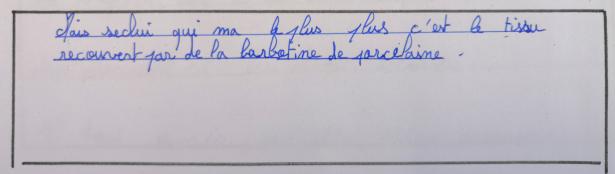 Mais seclui qui ma le plus plus c'est le tissu
recouvert par de la barbotine de porcelaine.